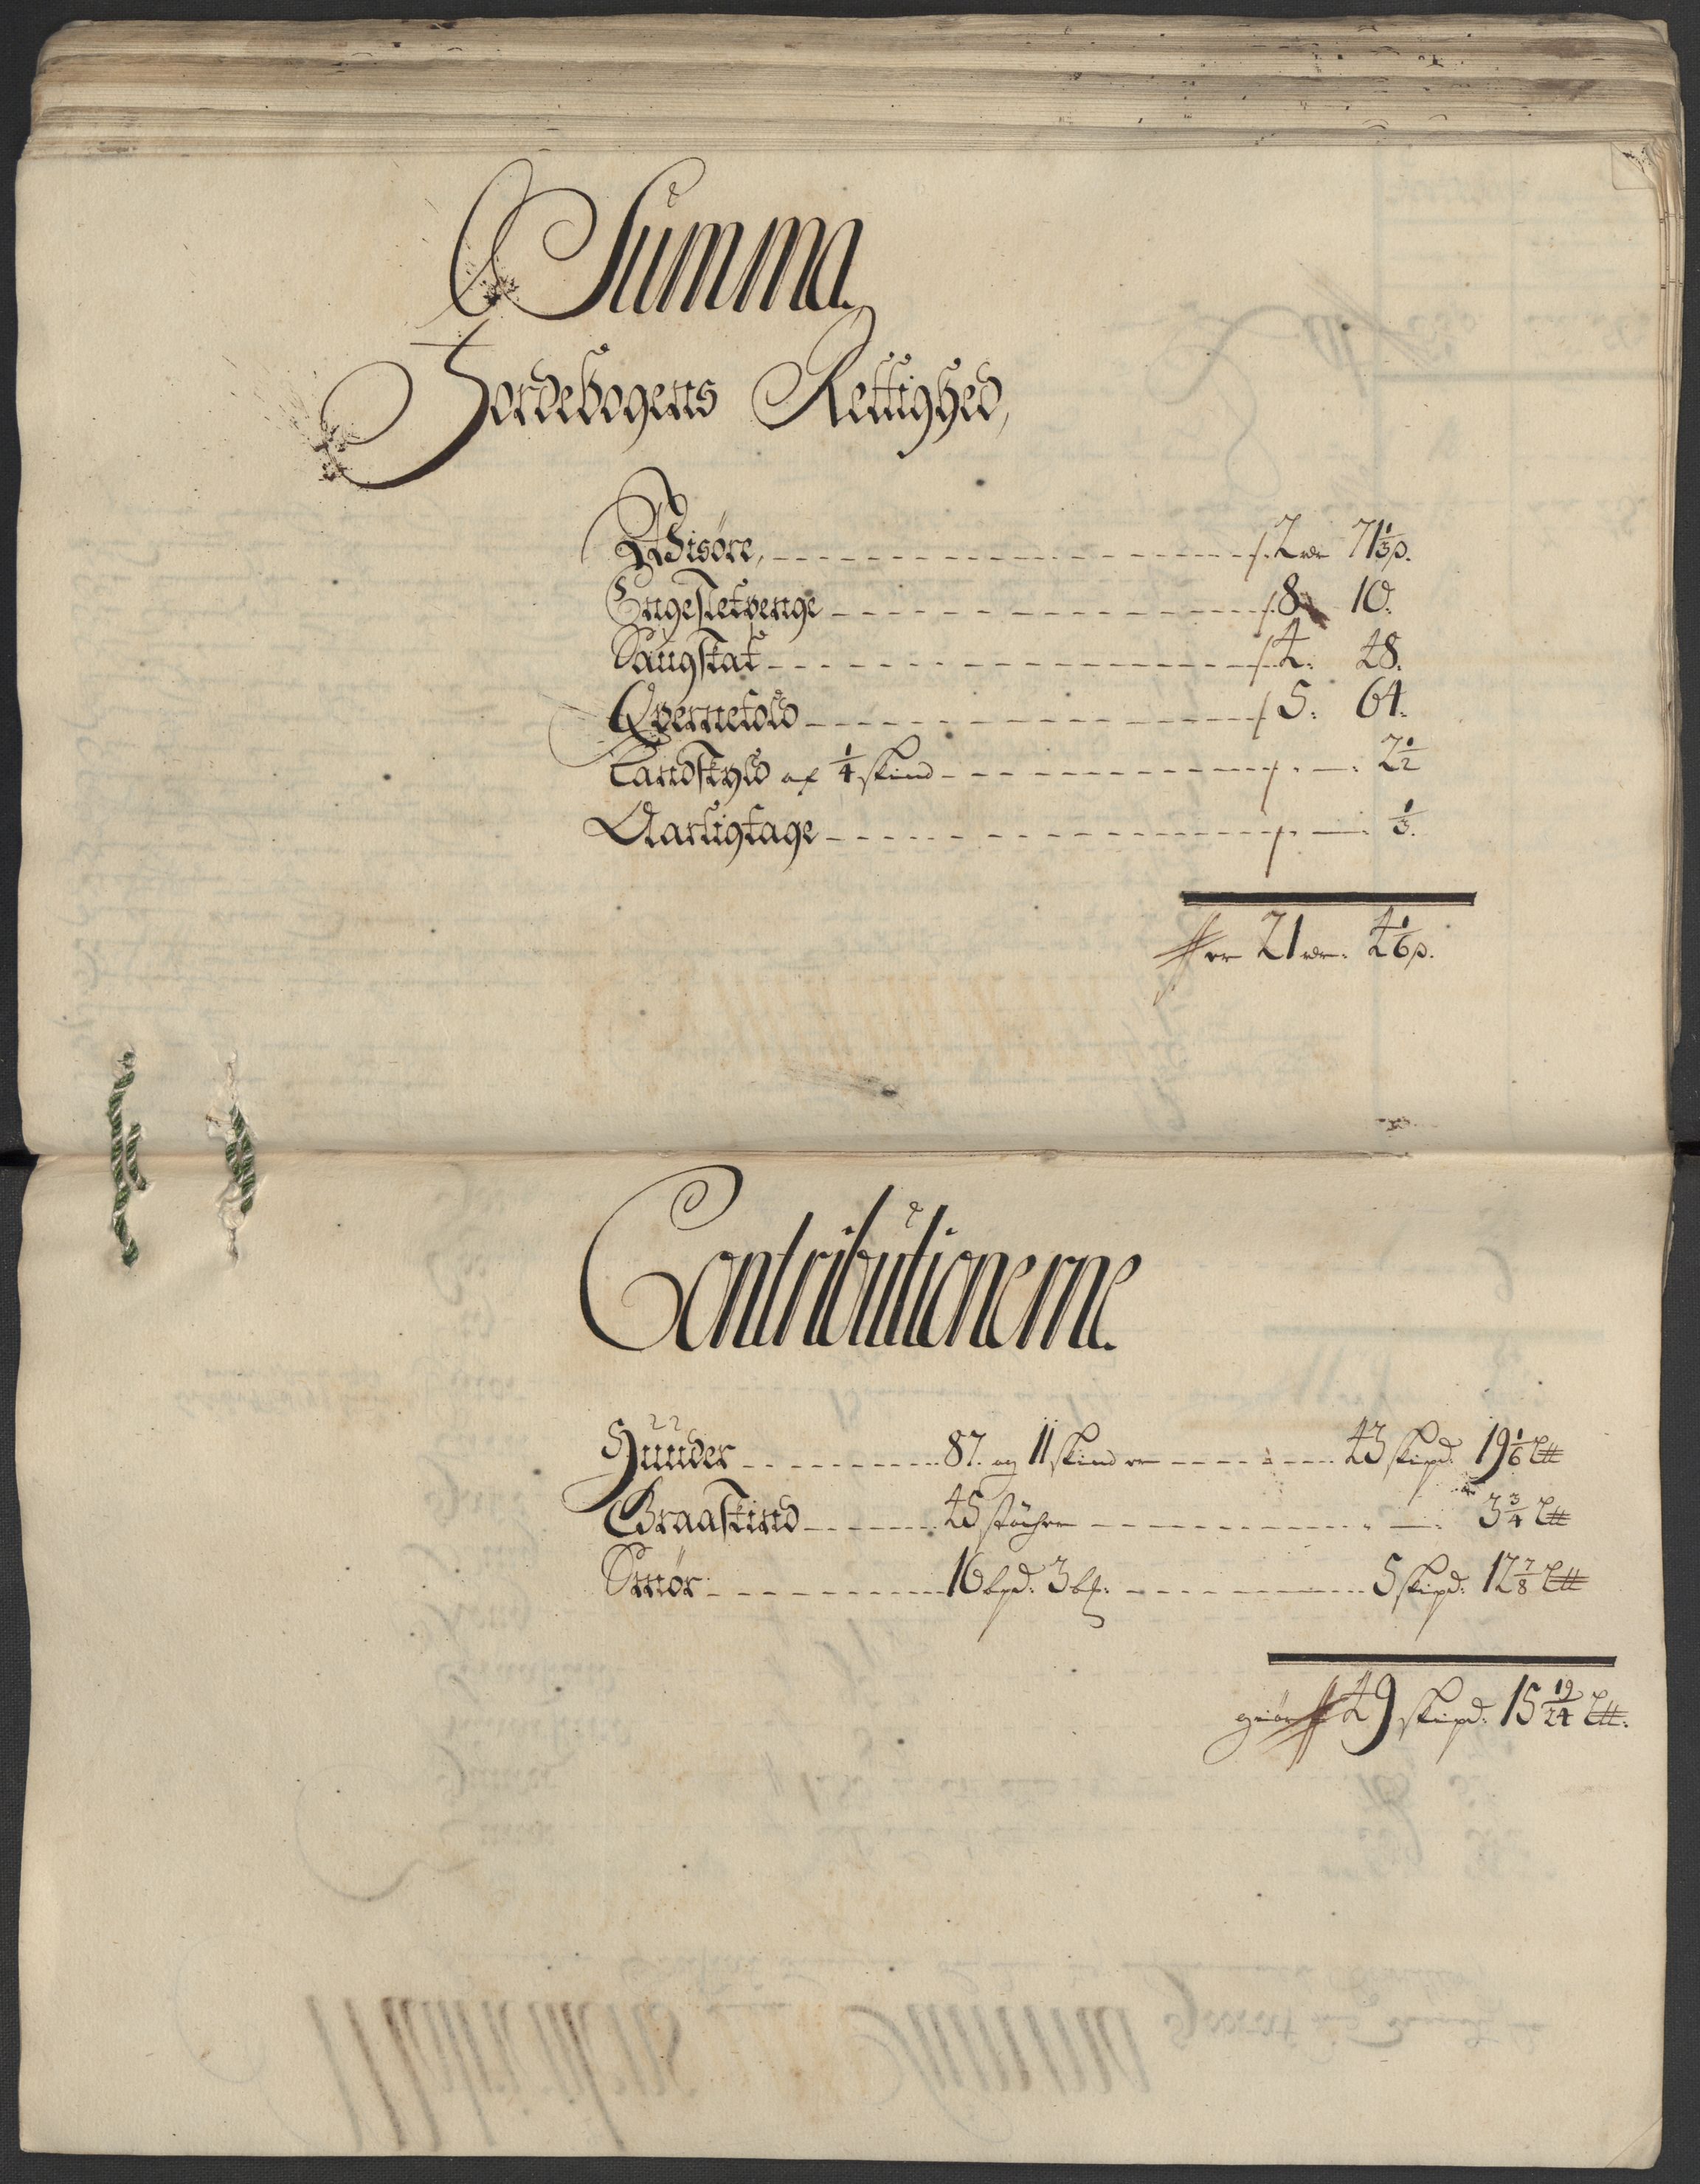 Summa
Jordebogens Rettighed,
Wisøre, 2 rdr 71 1/3 ß.
Engesletpenge 8 10.
Saugskat 4: 48.
Qvernetold 5: 64.
Landskyld af 1/4 skind —: 2 1/2
Aarligtage —: 1/3.
er 21 rdr: 4 1/6 ß.
Contributionerne
Huuder 87. og 11 skind er 43 skipd: 19 1/6 L℔
Graaskind 45 stöcher —: 3 3/4 L℔
Smør 16 bpd: 3 5 skipd: 12 7/8 L℔
giör 49 skipd: 15 19/24 L℔.